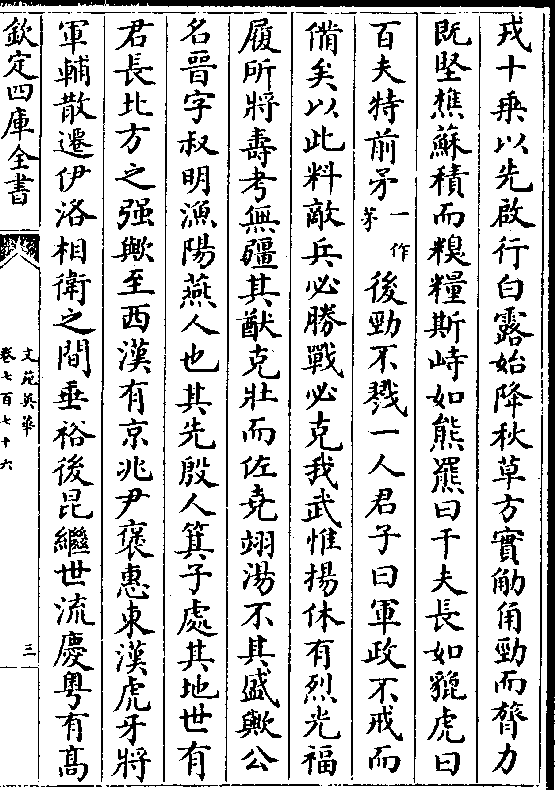 戎十乘以先啟行白露始降秋草方實觓角勁而膂力
既堅樵蘇積而糗糧斯峙如熊羆曰千夫長如貔虎曰
百夫特前矛一作茅後勁不戮一人君子曰軍政不戒而
備矣以此料敵兵必勝戰必克我武惟揚休有烈光福
履所將壽考無疆其猷克壯而佐堯翊湯不其盛歟公
名晉字叔明漁陽燕人也其先殷人箕子處其地世有
君長北方之强歟至西漢有京兆尹褒惠東漢虎牙將
軍輔散遷伊洛相衛之間垂裕後昆繼世流慶粵有高
欽定四庫全書
文苑英華
卷七百七十六
三